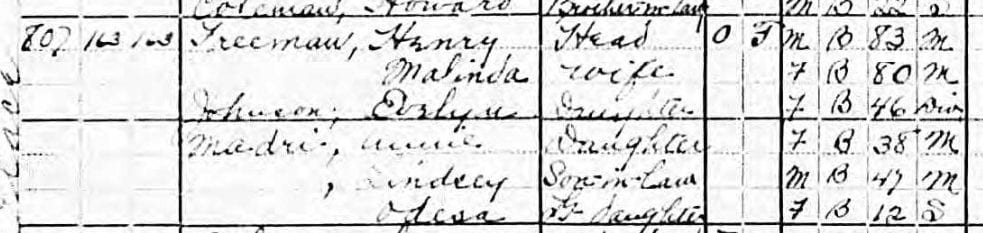 Coleman, Howard Brother-in-law M B 22 S
807 163 163 Freeman, Henry Head O F M B 83 M
Malinda wife F B 80 M
Johnson, Evelyn Daughter F B 46 Div
Madri, Annie Daughter F B 38 M
, Lindsey Son-in-law M B 47 M
Odesa Gr daughter F B 12 S